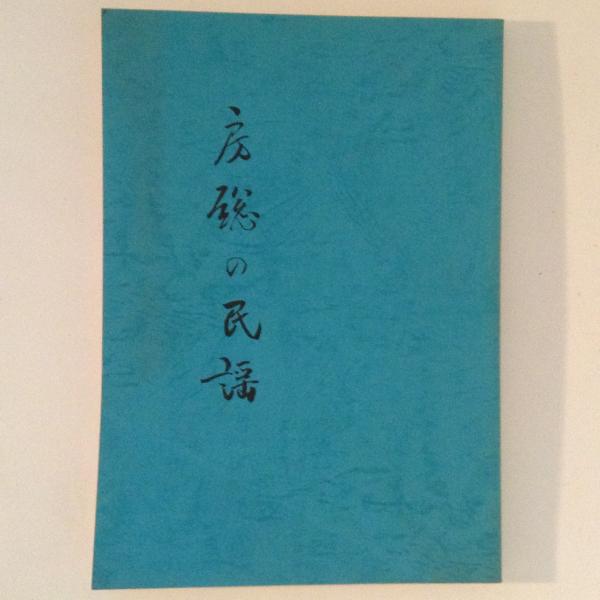 房聡の民謡